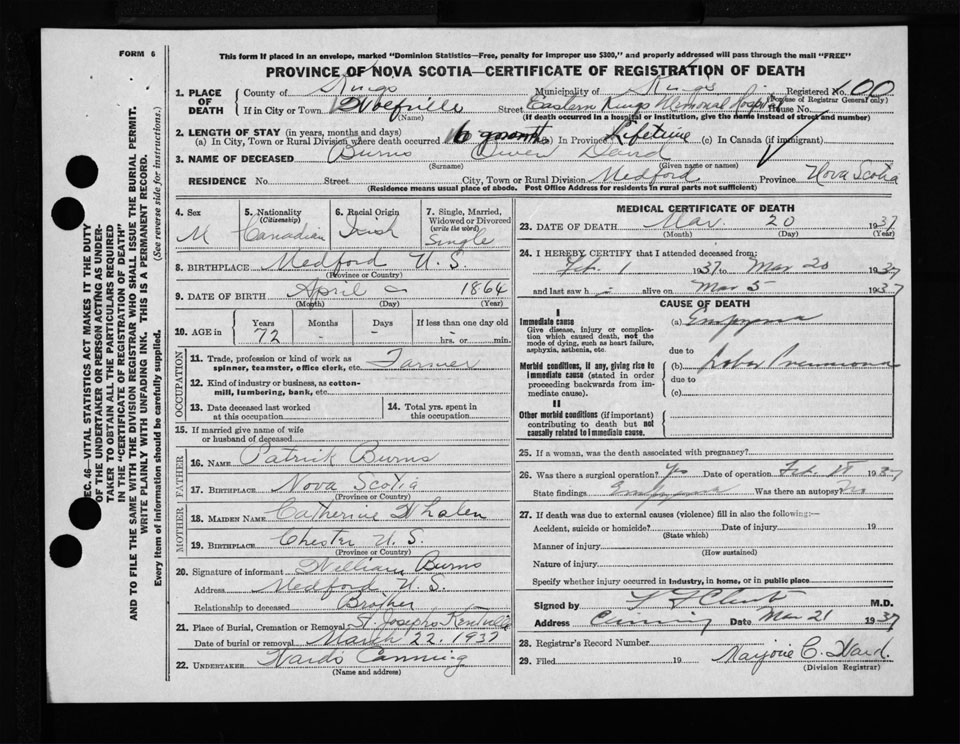 FORM 6
This form if placed in an envelope, marked "Dominion Statistics—Free, penalty for improper use $300," and properly addressed will pass through the mail "FREE"
PROVINCE OF NOVA SCOTIA—CERTIFICATE OF REGISTRATION OF DEATH
1. PLACE OF DEATH
County of Kings Municipality of Kings Registered No. 100
(For use of Registrar General only)
If in City or Town Wolfville Street Eastern Kings Memorial Hospital House No.
(Name) (If death occurred in a hospital or institution, give the name instead of street and number)
2. LENGTH OF STAY (in years, months and days)
(a) In City, Town or Rural Division where death occurred 6 (b) In Province Lifetime (c) In Canada (if immigrant)
3. NAME OF DECEASED Burns Owen David
(Surname) (Given name or names)
RESIDENCE No. Street City, Town or Rural Division Medford Province Nova Scotia
(Residence means usual place of abode. Post Office Address for residents in rural parts not sufficient)
4. Sex M
5. Nationality (Citizenship) Canadian
6. Racial Origin Irish
7. Single, Married, Widowed or Divorced (write the word) Single
8. BIRTHPLACE Medford N.S.
(Province or Country)
9. DATE OF BIRTH April 1864
(Month) (Day) (Year)
10. AGE in Years Months Days If less than one day old
72 - - hrs. or min.
OCCUPATION
11. Trade, profession or kind of work as spinner, teamster, office clerk, etc. Farmer
12. Kind of industry or business, as cotton-mill, lumbering, bank, etc.
13. Date deceased last worked at this occupation
14. Total yrs. spent in this occupation
15. If married give name of wife or husband of deceased
FATHER
16. NAME Patrick Burns
17. BIRTHPLACE Nova Scotia
(Province or Country)
MOTHER
18. MAIDEN NAME Catherine Whalen
19. BIRTHPLACE Chester N.S.
(Province or Country)
20. Signature of informant William Burns
Address Medford N.S.
Relationship to deceased Brother
21. Place of Burial, Cremation or Removal St. Josephs Kentville
Date of burial or removal March 22, 1937
22. UNDERTAKER Wards Canning
(Name and address)
MEDICAL CERTIFICATE OF DEATH
23. DATE OF DEATH Mar 20 1937
(Month) (Day) (Year)
24. I HEREBY CERTIFY that I attended deceased from:
Feb. 1 1937 to Mar 20 1937
and last saw h alive on Mar 5 1937
CAUSE OF DEATH
I
Immediate cause
Give disease, injury or complication which caused death, not the mode of dying, such as heart failure, asphyxia, asthenia, etc.
(a) Empyema
due to
Morbid conditions, if any, giving rise to immediate cause (stated in order proceeding backwards from immediate cause).
(b) Lobar Pneumonia
due to
(c)
II
Other morbid conditions (if important) contributing to death but not causally related to immediate cause.
25. If a woman, was the death associated with pregnancy?
26. Was there a surgical operation? Yes Date of operation Feb. 18 1937
State findings Empyema Was there an autopsy? No
27. If death was due to external causes (violence) fill in also the following:—
Accident, suicide or homicide? Date of injury 19
(State which)
Manner of injury
(How sustained)
Nature of injury
Specify whether injury occurred in industry, in home, or in public place
Signed by M.D.
Address Canning Date Mar 21 1937
28. Registrar's Record Number
29. Filed 19 Marjorie C. Ward.
(Division Registrar)
SEC. 46—VITAL STATISTICS ACT MAKES IT THE DUTY
OF THE UNDERTAKER OR PERSON ACTING AS UNDER-
TAKER TO OBTAIN ALL THE PARTICULARS REQUIRED
IN THE "CERTIFICATE OF REGISTRATION OF DEATH"
AND TO FILE THE SAME WITH THE DIVISION REGISTRAR WHO SHALL ISSUE THE BURIAL PERMIT.
WRITE PLAINLY WITH UNFADING INK. THIS IS A PERMANENT RECORD.
Every item of information should be carefully supplied. (See reverse side for instructions.)